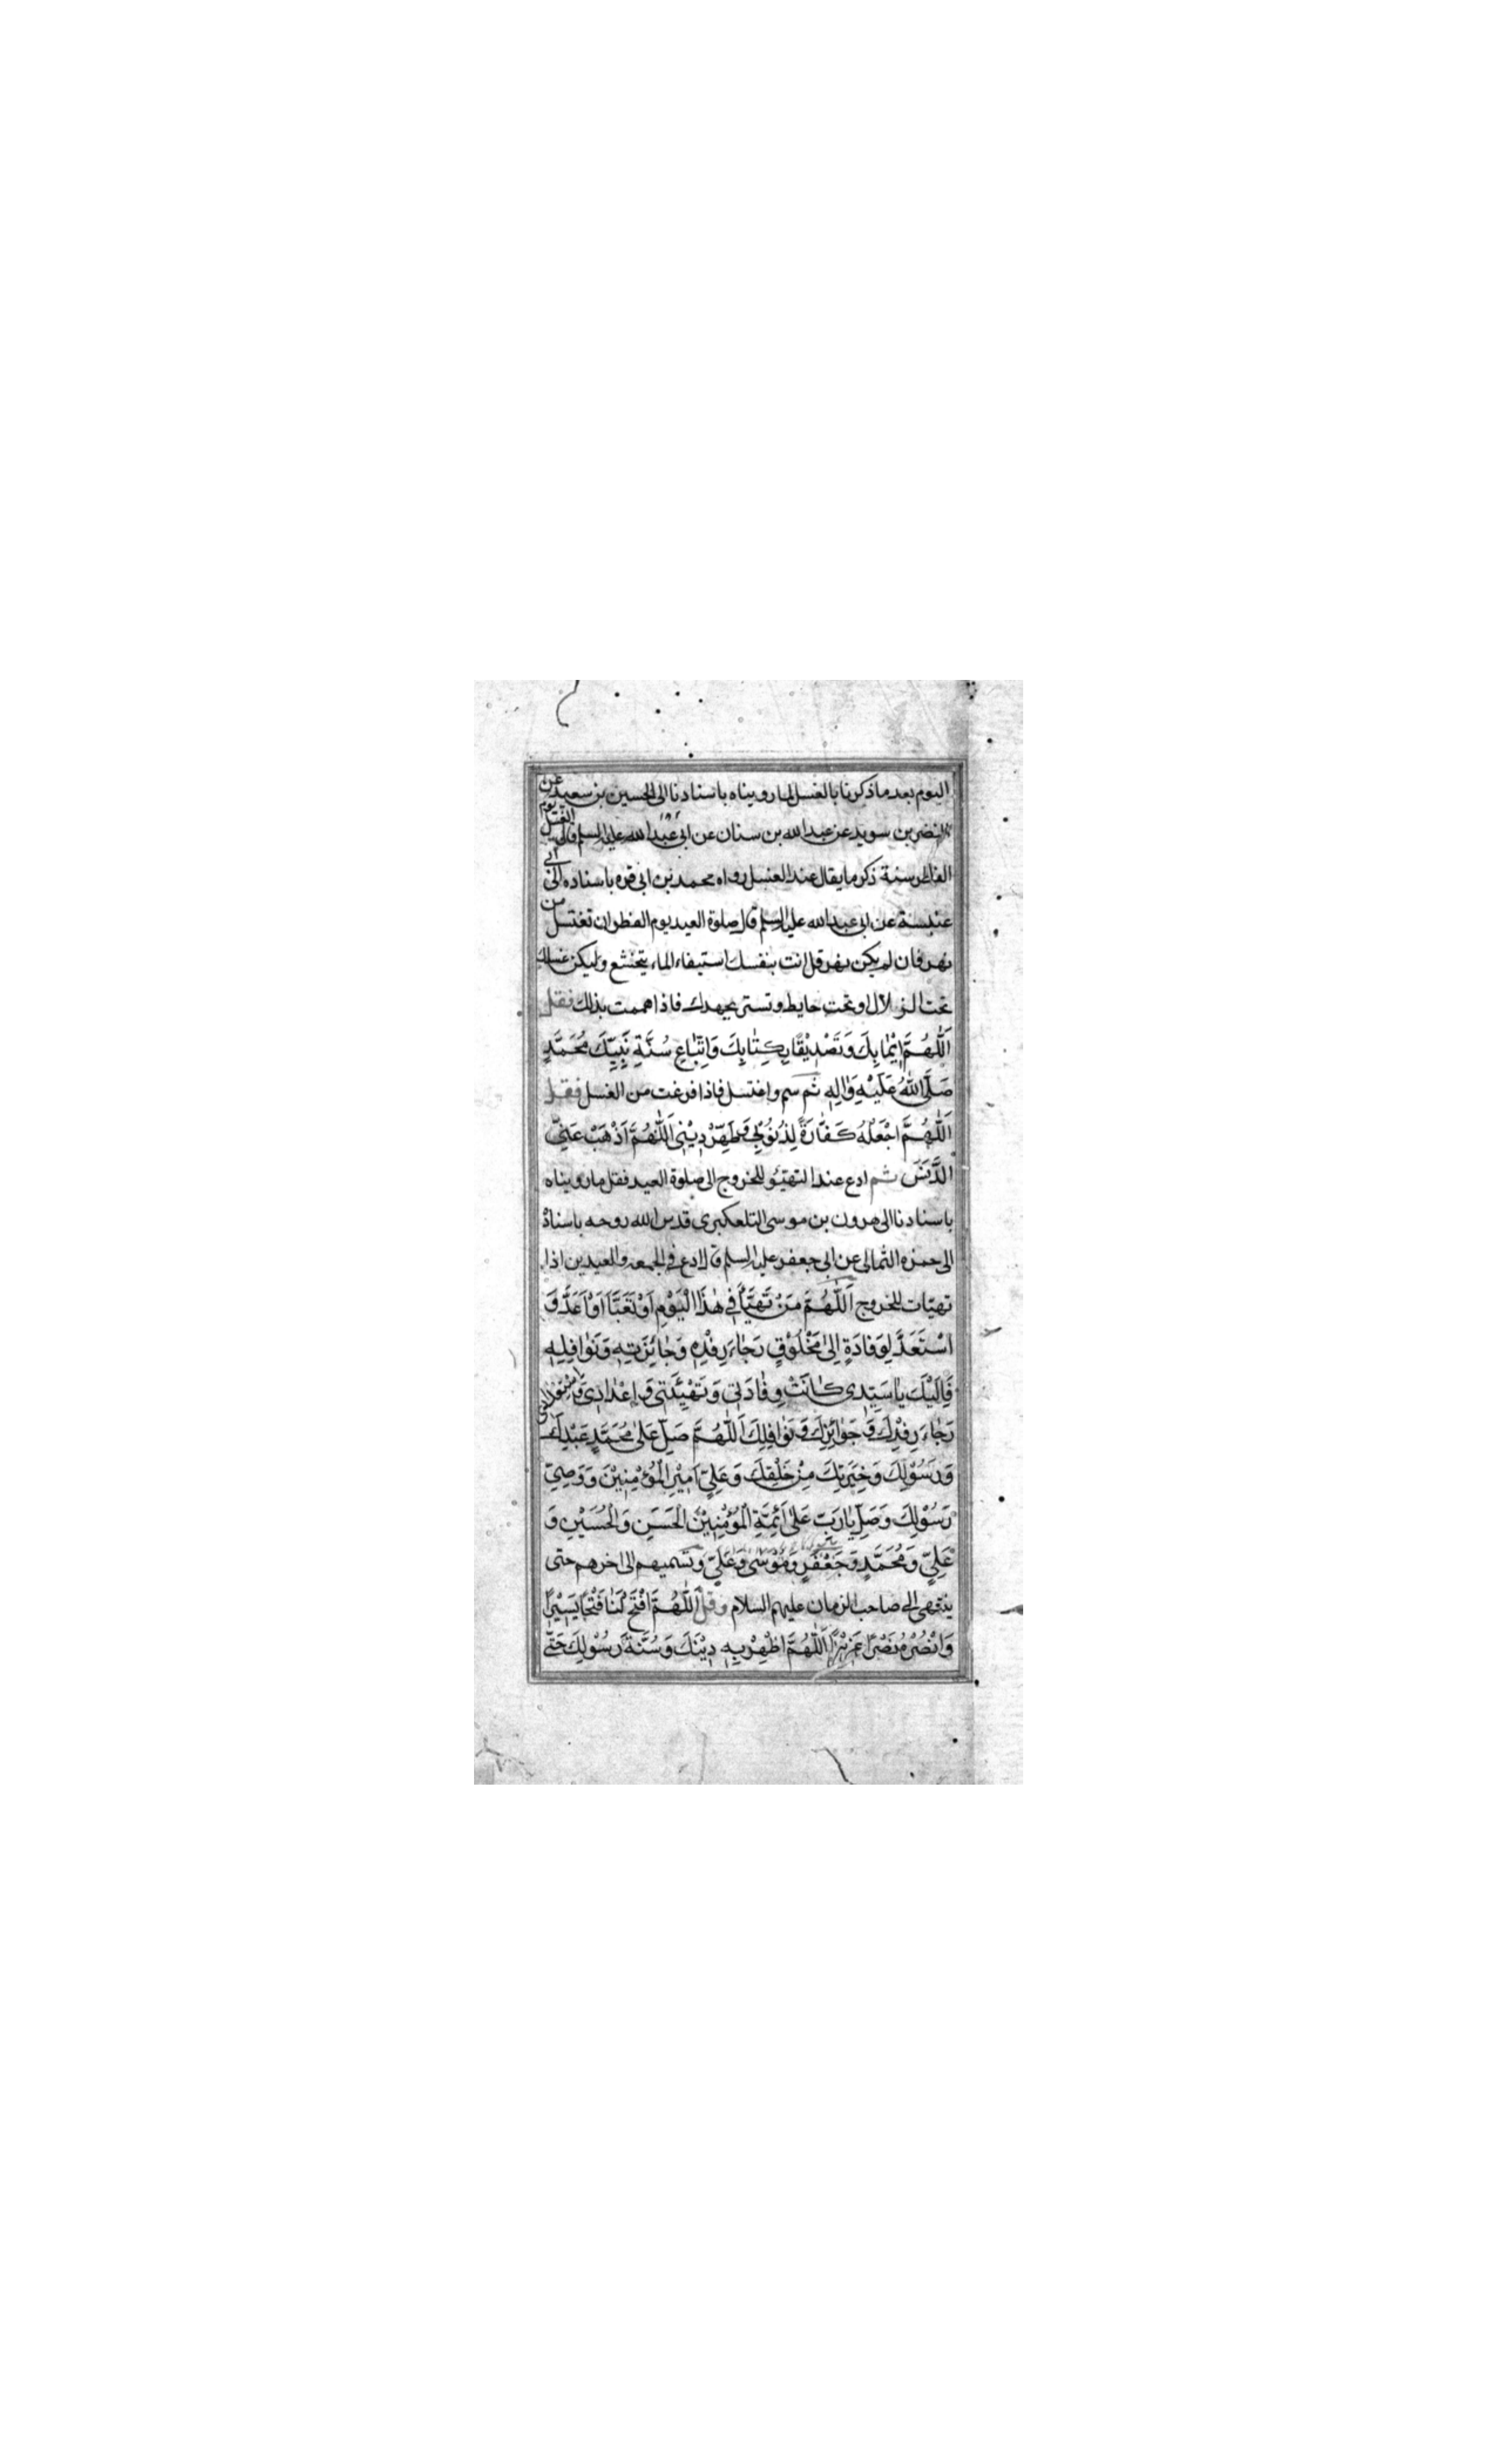 اليوم بعد ما ذكرنا بالغسل لما رويناه باسنادنا الى الحسين بن سعيد عن
النضر بن سويد عن عبد الله بن سنان عن ابى عبد الله عليه السلم قال الغسل يوم
الفطر سنة ذكر ما يقال عند الغسل رواه محمد بن ابى قره باسناده الى ابى
عنبسة عن ابى عبد الله عليه السلم قال صلوة العيد يوم الفطر ان تغتسل من
نهر فان لم يكن نهر قل انت بنفسك استيفاء الماء بتخشع وليكن غسلك
تحت الزلال او تحت حايط وتستر بجهدك فاذا هممت بذلك فقل
اَللّٰهُمَّ اِيْمٰا بِكَ وَتَصْدِيْقًا بِكِتٰابِكَ وَاتِّبٰاعِ سُنَّةِ نَبِيِّكَ مُحَمَّدٍ
صَلَّى اللّٰهُ عَلَيْهِ وَاٰلِهِ ثم سم واغتسل فاذا فرغت من الغسل فقل
اَللّٰهُمَّ اجْعَلْهُ كَفّٰارَةً لِذُنُوْبِيْ وَطَهِّرْ دِيْنِى اَللّٰهُمَّ اَذْهَبْ عَنِّيْ
الدَّنَسَ ثم ادع عند التهيئو للخروج الى صلوة العيد فقل ما رويناه
باسنادنا الى هرون بن موسى التلعكبرى قدس الله روحه باسناده
الى حمزه الثمالى عن ابى جعفر عليه السلم قال ادع فى الجمعه والعيدين اذا
تهيّات للخروج اَللّٰهُمَّ مَنْ تَهَيَّأَ فِي هٰذَا الْيَوْمِ اَوْ تَعَبَّأَ اَوْ اَعَدَّ وَ
اسْتَعَدَّ لِوَفادَةٍ اِلىٰ مَخْلُوْقٍ رَجٰاءَ رِفْدِهِ وَجٰائِزَتِهِ وَنَوٰافِلِهِ
فَاِلَيْكَ يٰا سَيِّدِى كٰانَتْ وِفٰادَتِى وَتَهْيِئَتِى وَاِعْدٰادِى وَاسْتِعْدٰادِى
رَجٰاءَ رِفْدِكَ وَجَوٰائِزِكَ وَنَوٰافِلِكَ اَللّٰهُمَّ صَلِّ عَلىٰ مُحَمَّدٍ عَبْدِكَ
وَرَسُوْلِكَ وَخِيَرَتِكَ مِنْ خَلْقِكَ وَعَلِيٍّ اَمِيْرِ الْمُؤْمِنِيْنَ وَوَصِيِّ
رَسُوْلِكَ وَصَلِّ يٰا رَبِّ عَلىٰ اَئِمَّةِ الْمُؤْمِنِيْنَ الْحَسَنِ وَالْحُسَيْنِ وَ
عَلِيٍّ وَمُحَمَّدٍ وَجَعْفَرٍ وَمُوْسىٰ وَعَلِيٍّ وتسميهم الى اخرهم حتى
ينتهى الى صاحب الزمان عليهم السلام وقل اَللّٰهُمَّ افْتَحْ لَنٰا فَتْحًا يَسِيْرًا
وَانْصُرْهُ نَصْرًا عَزِيْزًا اَللّٰهُمَّ اَظْهِرْ بِهِ دِيْنَكَ وَسُنَّةَ رَسُوْلِكَ حَتّٰى